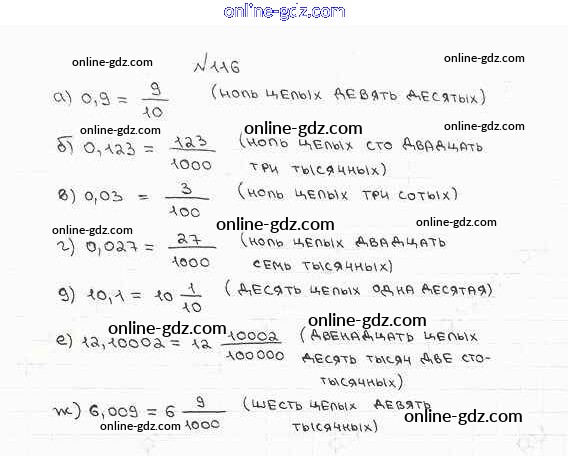 online-gdz.com
online-gdz.com
№116
online-gdz.com
а) 0,9 = 9/10 (ноль целых девять десятых)
online-gdz.com
online-gdz.com
online-gdz.com
б) 0,123 = 123/1000 (ноль целых сто двадцать
три тысячных)
в) 0,03 = 3/100 (ноль целых три сотых)
online-gdz.com
online-gdz.com
online-gdz.com
г) 0,027 = 27/1000 (ноль целых двадцать
семь тысячных)
д) 10,1 = 10 1/10 (десять целых одна десятая)
online-gdz.com
online-gdz.com
е) 12,10002 = 12 10002/100000 (двенадцать целых
десять тысяч две сто-
тысячных)
ж) 6,009 = 6 9/1000 (шесть целых девять
тысячных)
online-gdz.com
online-gdz.com